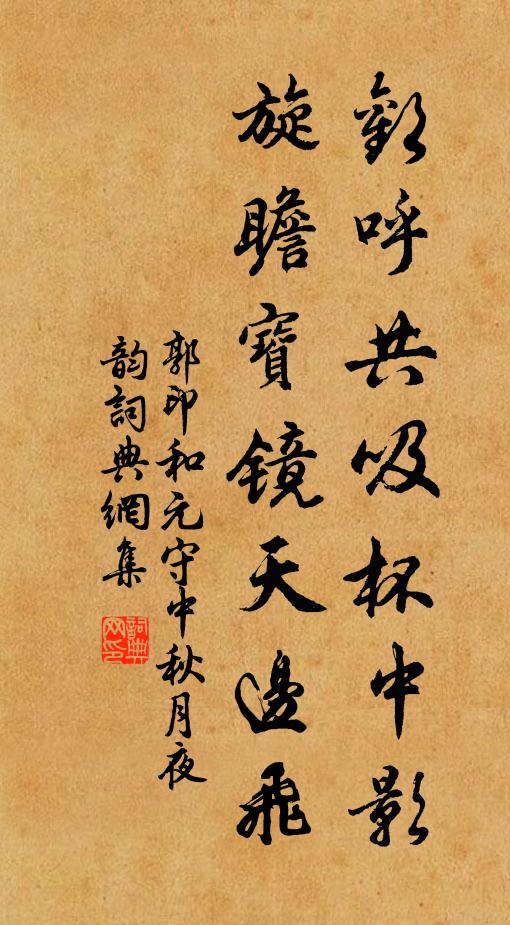 歡呼共吸杯中影
旋瞻寶鏡天邊飛
郭印和元守中秋月夜
韵詞典網集
詞典網印